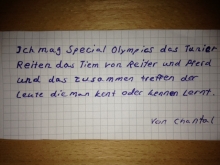 Ich mag Special Olympics das Tunier
Reiten das Tiem von Reiter und Pferd
und das zusammen treffen der
Leute die man kent oder kennen Lernt.
von Chantal